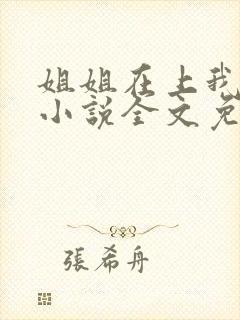 姐姐在上我
小說全文免
張希舟